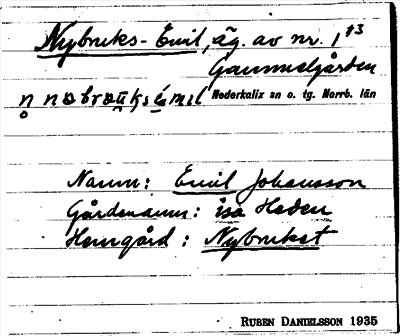 Nybruks-Emil, äg. av nr. 1 t3
Gammelgården
Nederkalix sn o. tg. Norrb. län
Namn: Emil Johansson
Gårdsnamn: isa Heden
Hemgård: Nybruket
RUBEN DANIELSSON 1935